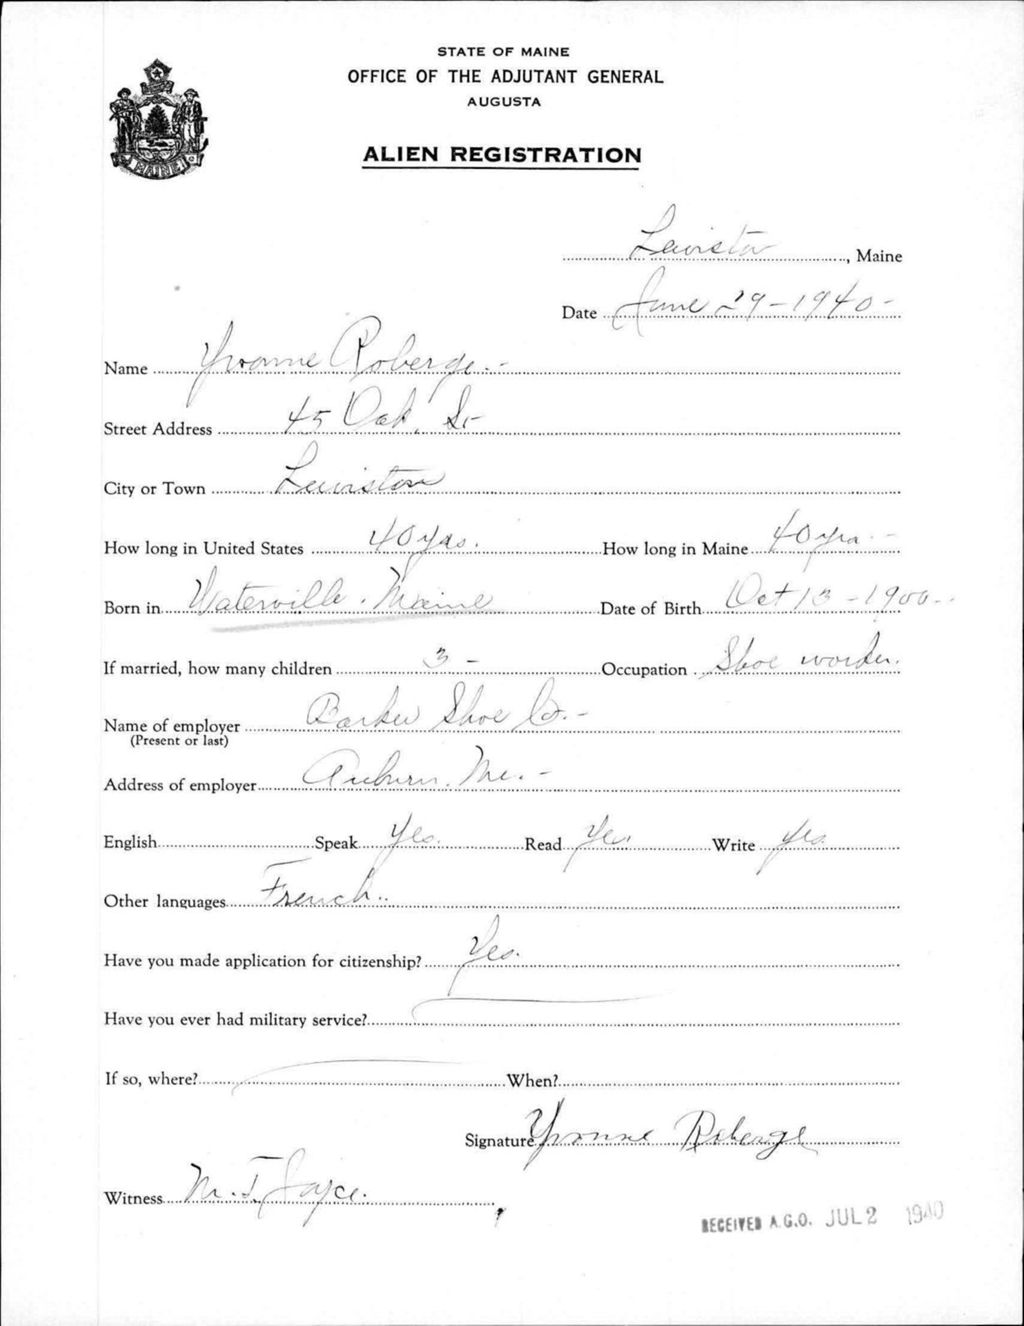 STATE OF MAINE
OFFICE OF THE ADJUTANT GENERAL
AUGUSTA
ALIEN REGISTRATION
MAINE
Lewiston, Maine
Date June 29-1940-
Name Yvonne Roberge.-
Street Address 45 Oak. St-
City or Town Lewiston
How long in United States 40 yrs. How long in Maine 40 yrs. -
Born in Waterville. Maine Date of Birth Oct 13-1900-.
If married, how many children 3- Occupation Shoe worker.
Name of employer Barker Shoe Co.-
(Present or last)
Address of employer Auburn. Me.-
English Speak Yes. Read Yes. Write Yes.
Other languages French..
Have you made application for citizenship? Yes.
Have you ever had military service?
If so, where? When?
Signature Yvonne Roberge
Witness M. T. Joyce.
RECEIVED A.G.O. JUL 2 1940